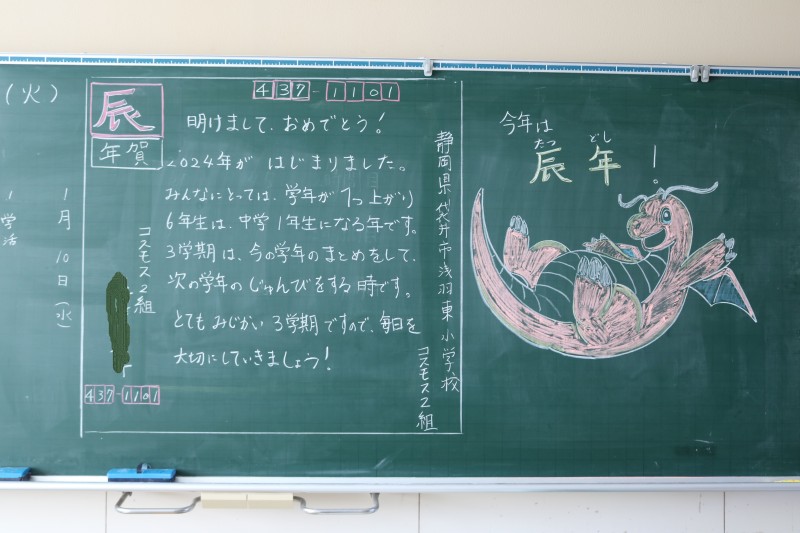 (火)
1月10日(水)
1 学活
437-1101
辰
年賀
明けまして、おめでとう!
2024年が はじまりました。
みんなにとっては、学年が1つ上がり
6年生は、中学1年生になる年です。
3学期は、今の学年のまとめをして、
次の学年のじゅんびをする時です。
とてもみじかい3学期ですので、毎日を
大切にしていきましょう!
静岡県袋井市浅羽東小学校
コスモス2組
コスモス2組
437-1101
今年は
たつ どし
辰年!